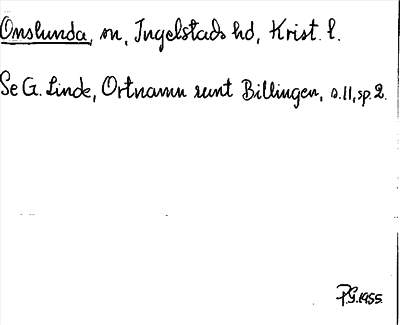 Onslunda, sn, Ingelstads hd, Krist. l.
Se G. Linde, Ortnamn runt Billingen, s. 11, sp. 2.
P.G. 1955.